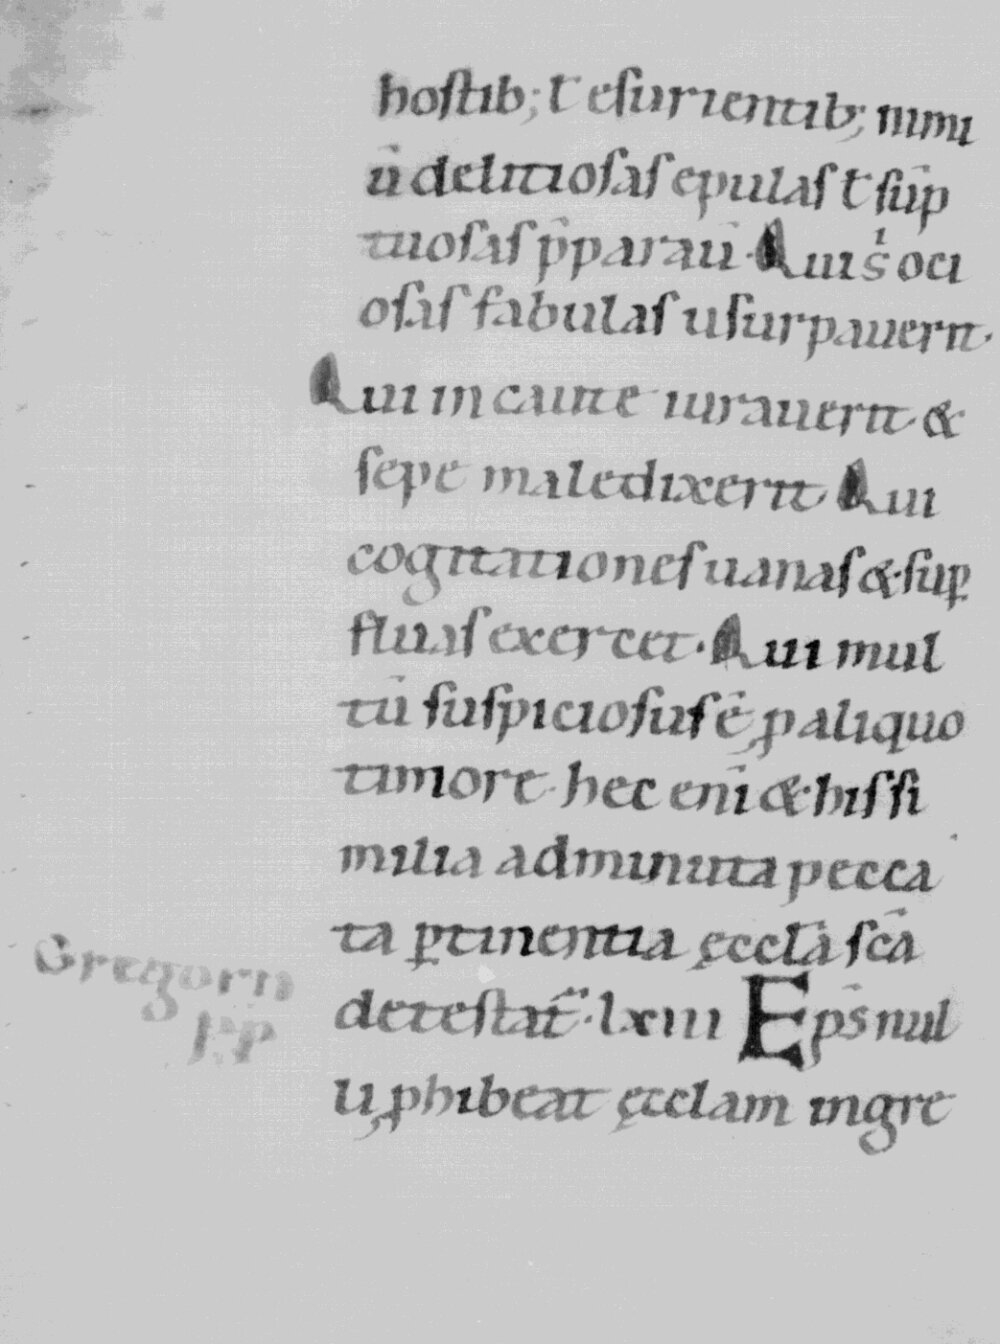 hostib; ł esurientib; nimi
ū delitiosas epulas ł sūp
tuosas p̄parauī. Qui s̍ oci
osas fabulas usurpauerit.
Qui incaute iurauerit. &
sepe maledixerit. Qui
cogitationes uanas & sup̱
fluas exercet. Qui mul
tū suspiciosus ē, ꝓ aliquo
timore. hec enī & his si
milia ad minuta pecca
ta ꝑtinentia ęccl̄a sc̄a
detestat᷑. lxiii Ep̄s nul
lū ꝓhibeat ęcclam ingre
Gregorii
P̄P